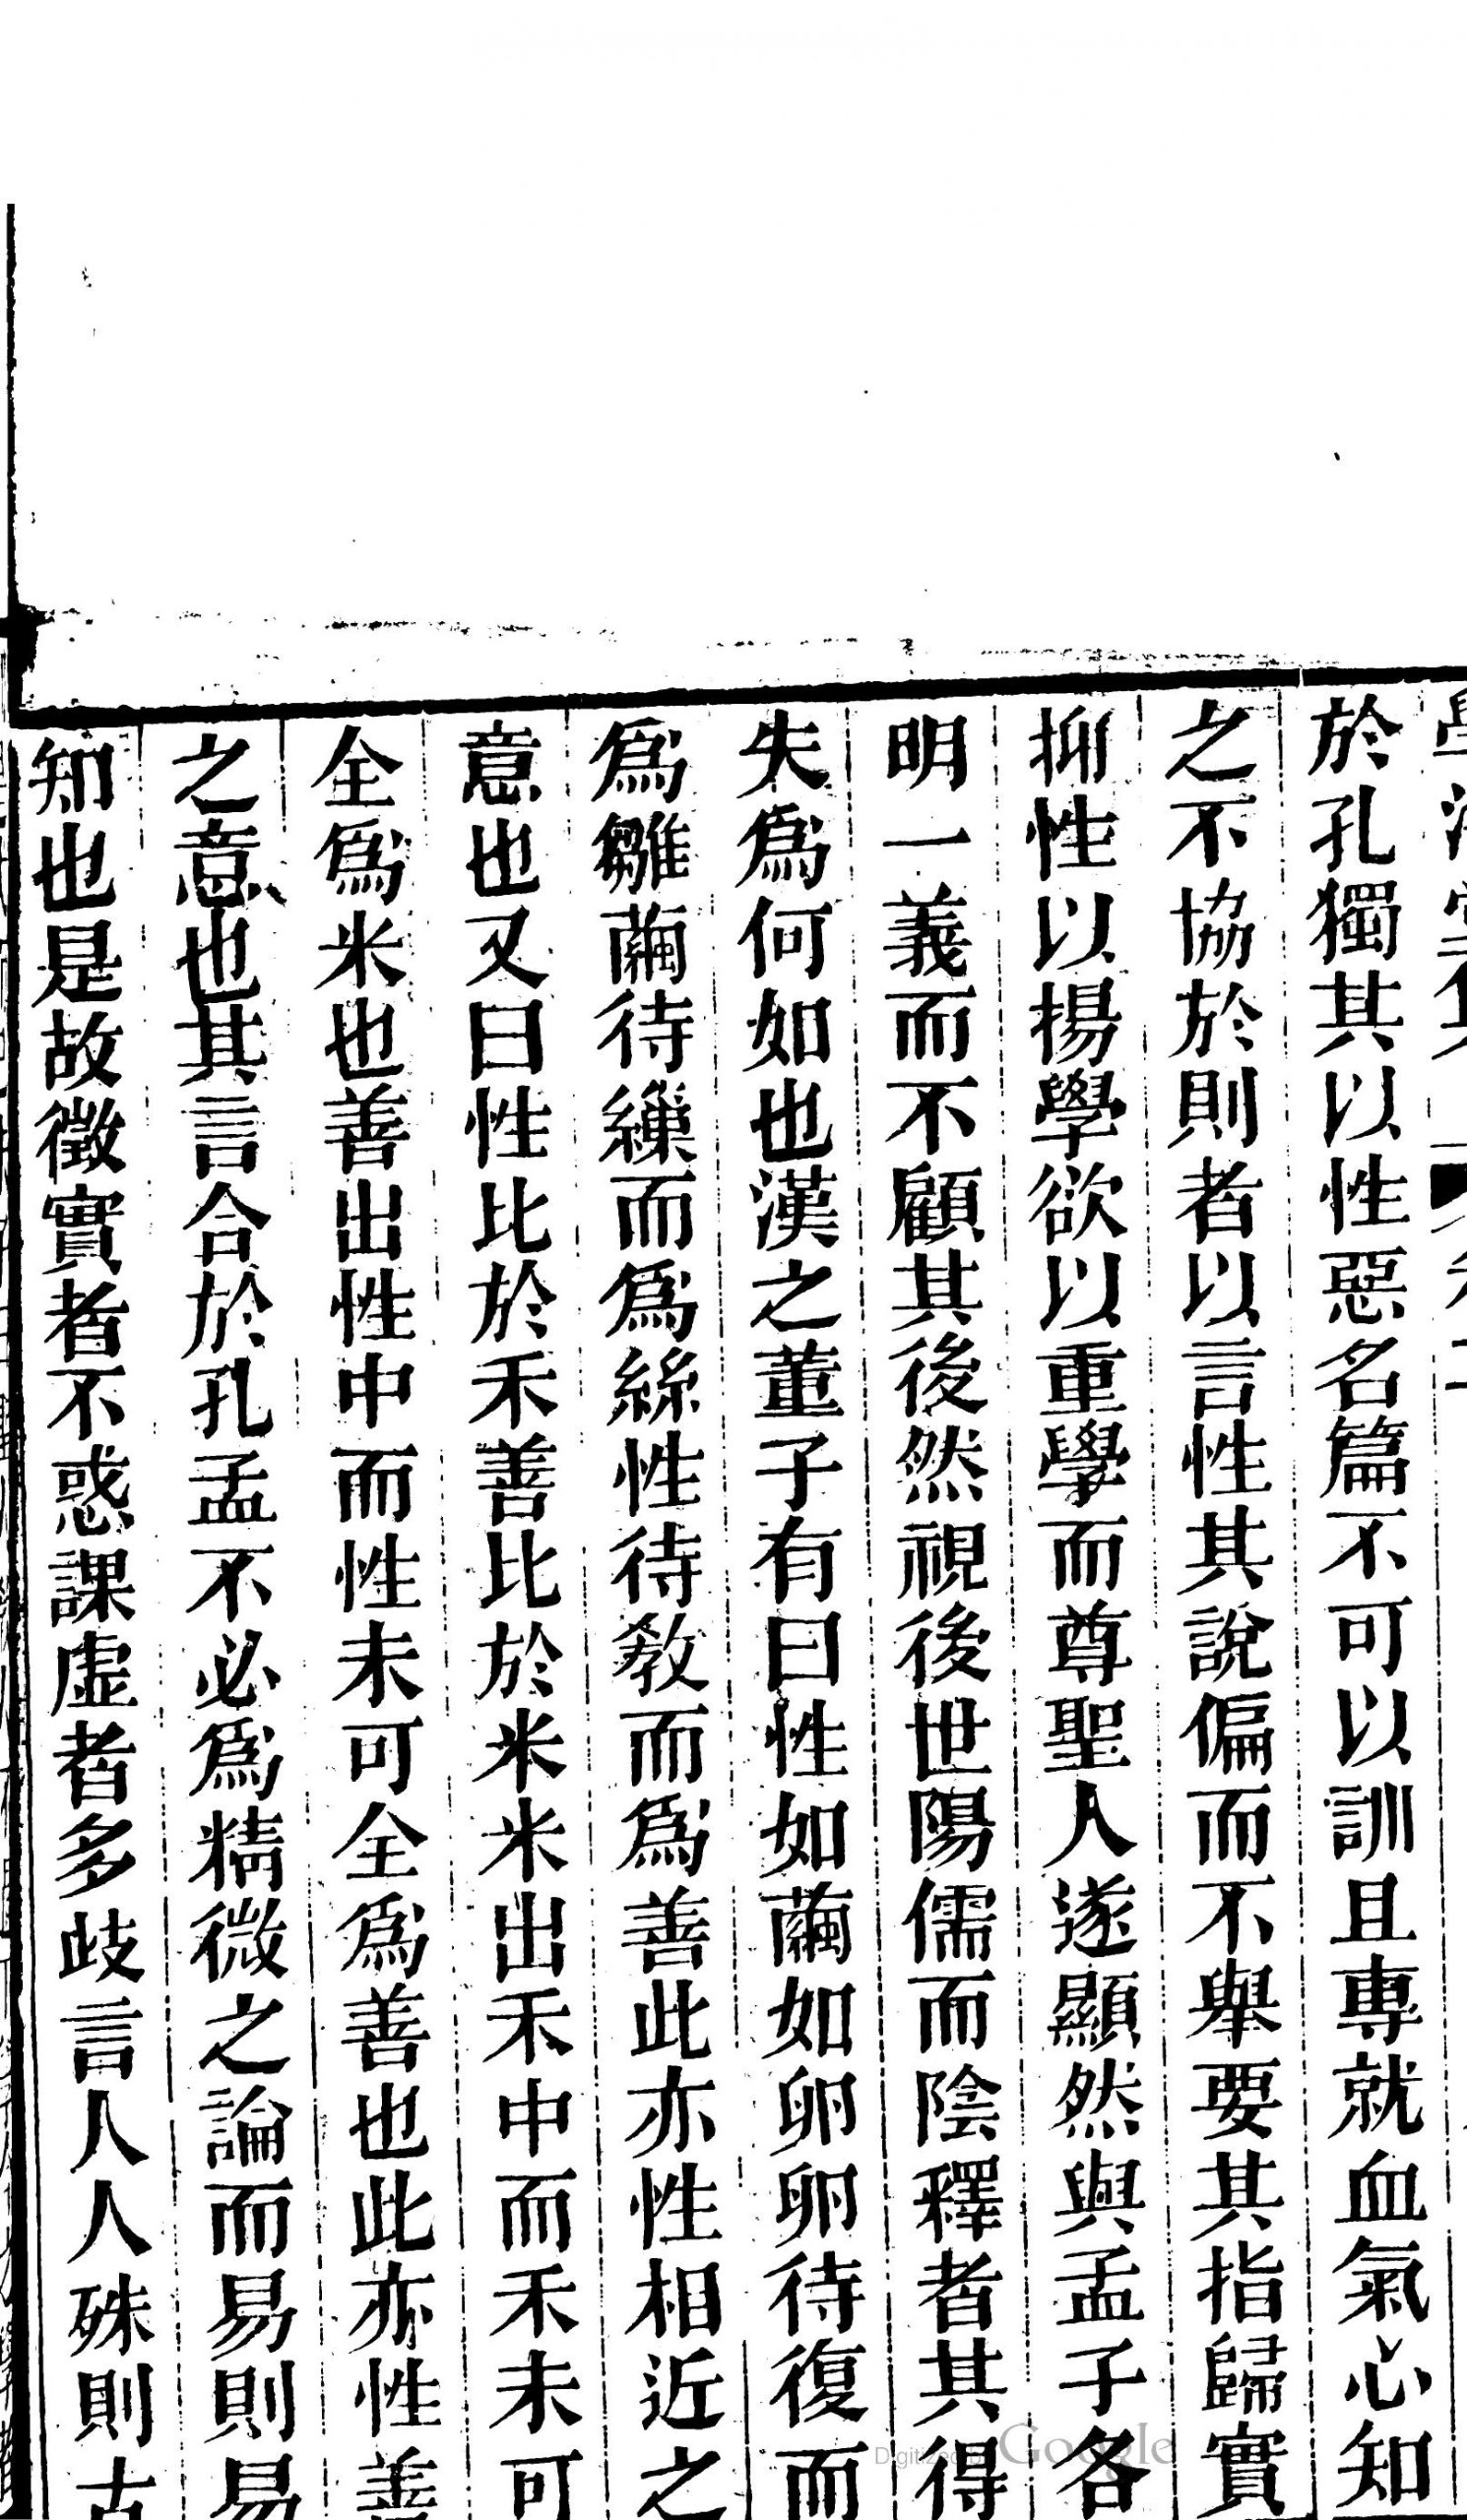 於孔獨其以性惡名篇不可以訓且專就血氣心知
之不協於則者以言性其說偏而不舉要其指歸實
抑性以揚學欲以重學而尊聖人遂顯然與孟子各
明一義而不顧其後然視後世陽儒而陰釋者其得
失爲何如也漢之董子有曰性如繭如卵卵待復而
爲雛繭待繅而爲絲性待教而爲善此亦性相近之
意也又曰性比於禾善比於米米出禾中而禾未可
全爲米也善出性中而性未可全爲善也此亦性善
之意也其言合於孔孟不必爲精微之論而易則易
知也是故徵實者不惑課虛者多歧言人人殊則古
Digitized by Google